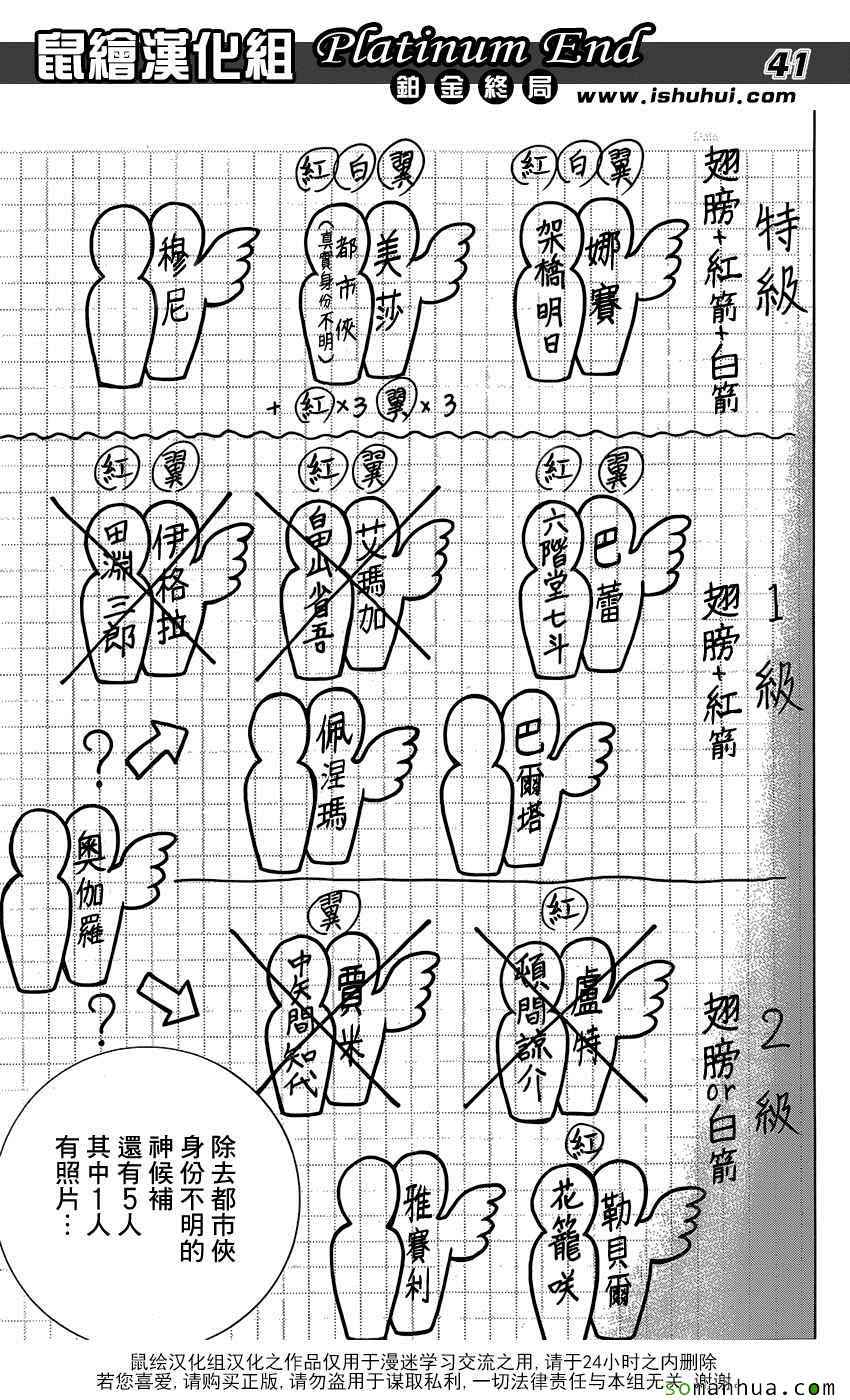 鼠繪漢化組
Platinum End
鉑金終局
41
www.ishuhui.com
特級
翅膀+紅箭+白箭
紅白翼
娜賽
架橋明日
紅白翼
美莎
都市俠
(真實身份不明)
+紅×3 翼×3
穆尼
1級
翅膀+紅箭
紅翼
巴蕾
六階堂七斗
紅翼
艾瑪加
畠山省吾
紅翼
伊格拉
田淵三郎
巴爾塔
佩涅瑪
?
奧伽羅
?
2級
翅膀or白箭
紅
盧特
頓間諒介
翼
賈米
中矢間知代
紅
勒貝爾
花籠咲
雅賽利
除去都市俠
身份不明的
神候補
還有5人
其中1人
有照片…
鼠绘汉化组汉化之作品仅用于漫迷学习交流之用,请于24小时之内删除
若您喜爱,请购买正版,请勿盗用于谋取私利,一切法律责任与本组无关,谢谢
somanhua.com